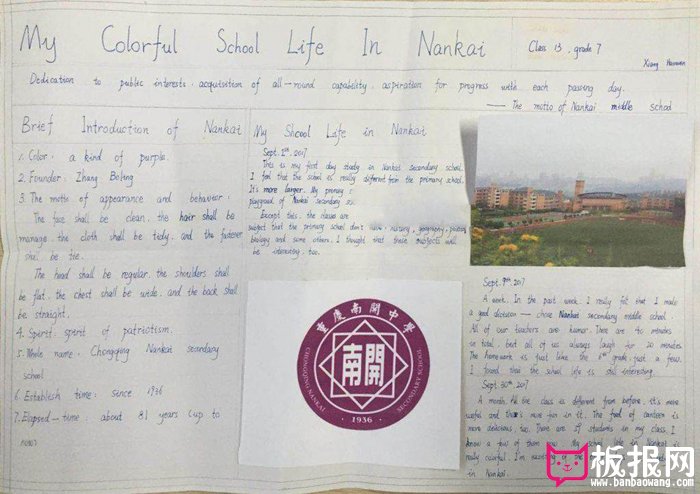 My Colorful School Life In Nankai
Class 13, grade 7
Dedication to public interests, acquisition of all-round capability, aspiration for progress with each passing day.
— The motto of Nankai middle school
Brief Introduction of Nankai
1. Color: a kind of purple.
2. Founder: Zhang Boling
3. The motto of appearance and behavior:
The face shall be clean, the hair shall be
manage, the cloth shall be tidy, and the fastener
shall be tie.
The head shall be regular, the shoulders shall
be flat, the chest shall be wide, and the back shall
be straight.
4. Spirit: spirit of patriotism.
5. Whole name: Chongqing Nankai secondary
school
6. Establish time: since 1936
7. Elapsed-time: about 81 years (up to
My Shcool Life in Nankai
Sept. 1st, 2017
This is my first day study in Nankai secondary school.
I feel that the school is really different from the primary school.
It's more larger. My primary
playground of Nankai secondary
Except this, the classes are
subject that the primary school don't have: history, geography,
biology and some others. I thought that these subjects will
be interesting, too.
重慶南開中學
南開
CHONGQING NANKAI SECONDARY SCHOOL
·1936·
Sept. 9th, 2017
A week. In the past week, I really felt that I made
a good decision — chose Nankai secondary middle school.
All of our teachers are humor. There are 40 minutes
in total, but all of us always laugh for 20 minutes.
The homework is just like the 6th grade, just a few.
I found that the school life is still interesting.
Sept. 30th, 2017
A month. All the class is different from before. It's more
useful and there's more fun in it. The food of canteen is
more delicious, too. There are 59 students in my class. I
know a few of them now. My school life in Nankai is
really colorful. I'm
in Nankai.
板报网
www.banbaowang.com